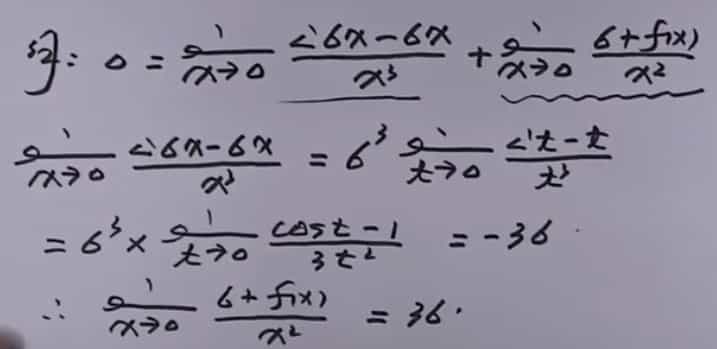 解: 0 = lim x→0 (sin6x-6x)/x³ + lim x→0 (6+f(x))/x²
lim x→0 (sin6x-6x)/x³ = 6³ lim t→0 (sin t-t)/t³
= 6³ × lim t→0 (cost-1)/3t² = -36
∴ lim x→0 (6+f(x))/x² = 36.